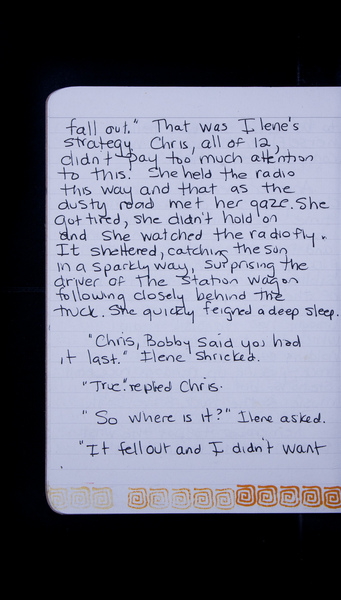 fall out." That was Ilene's
strategy. Chris, all of 12,
didn't pay too much attention
to this. She held the radio
this way and that as the
dusty road met her gaze. She
got tired, she didn't hold on
and she watched the radio fly.
It sheltered, catching the sun
in a sparkly way, surprising the
driver of the station wagon
following closely behind the
truck. She quickly feigned a deep sleep.
"Chris, Bobby said you had
it last." Ilene shricked.
"True." replied Chris.
"So where is it?" Ilene asked.
"It fell out and I didn't want